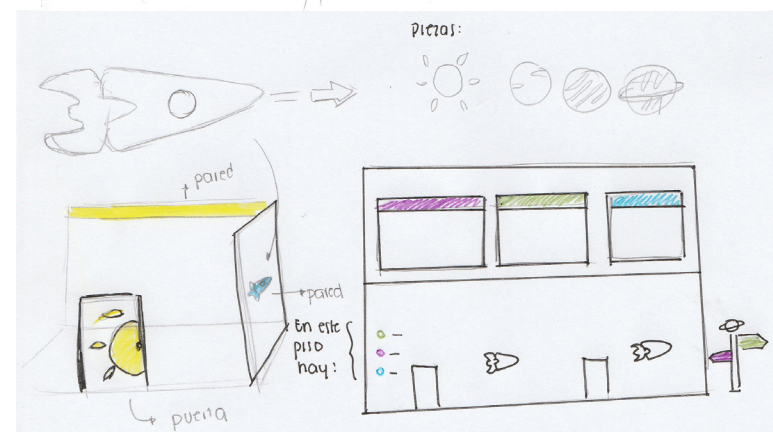 Piezas:
pared
pared
En este
piso
hay:
puerta